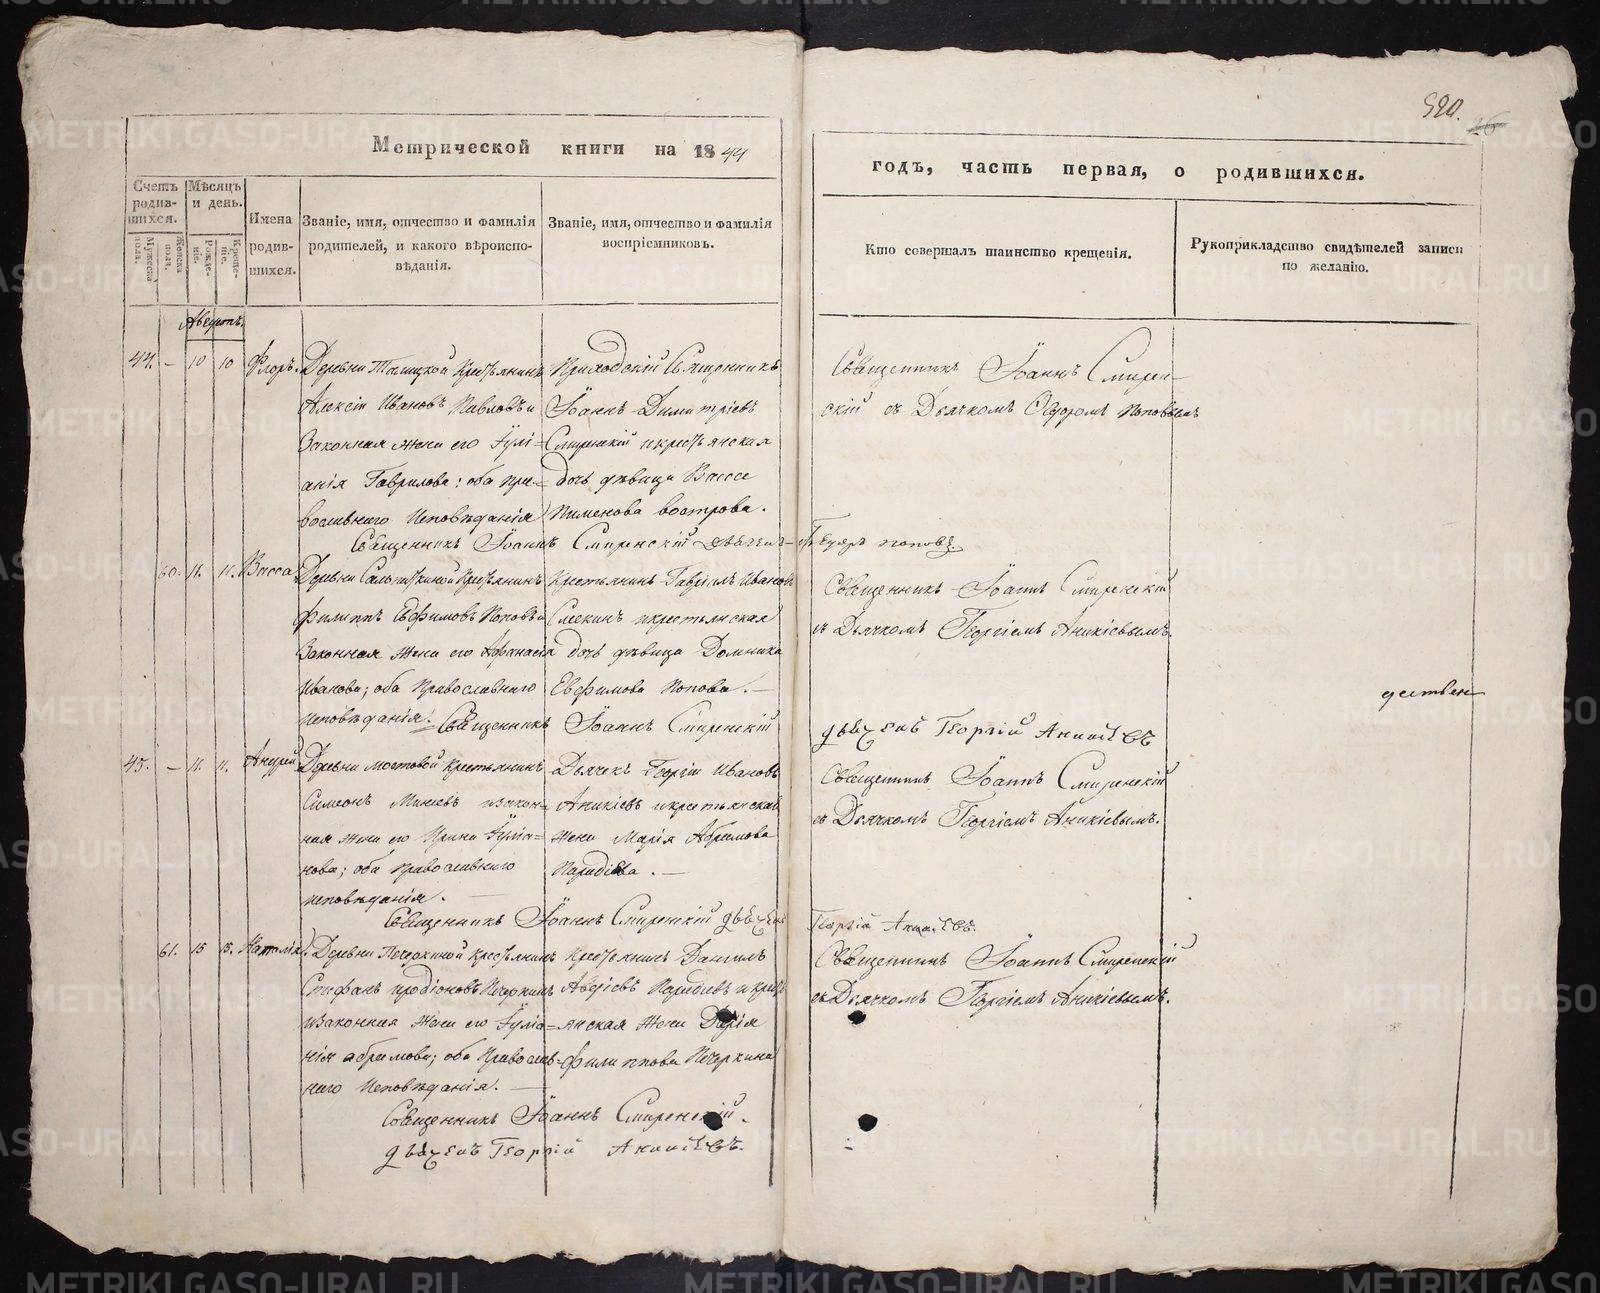 520.
26
Метрической книги на 1844
годъ, часть первая, о родившихся.
Счетъ родив-шихся.
Мѣсяцъ и день.
Мужеска пола.
Женска пола.
Рожде-нія.
Креще-нія.
Имена родив-шихся.
Званіе, имя, отчество и фамилія
родителей, и какого вѣроиспо-
вѣданія.
Званіе, имя, отчество и фамилія
воспріемниковъ.
Кто совершалъ таинство крещенія.
Рукоприкладство свидѣтелей записи
по желанію.
Августъ.
44. – 10 10 Флоръ.
Деревни Талицкой Крестьянинъ
Алексій Ивановъ Павловъ и
Законная жена его Іулі=
анія Гаврилова: оба пра=
вославнаго Исповѣданія
Приходскій Священникъ
Іоаннъ Димитріевъ
Смиренскій и крестьянская
дочь дѣвица Васса
Пименова вострова.
Священникъ Іоаннъ Смирен–
скій съ Дьячкомъ Ѳедоромъ Поповымъ
Священникъ Іоаннъ Смиренскій дьячекъ Ѳедоръ поповъ.
60. 11. 11. Васса
Деревни Крестьянинъ
Филиппъ Евфимовъ Поповъ и
Законная жена его Афанасія
Иванова; оба Православнаго
исповѣданія.
Крестьянинъ Гавріилъ Ивановъ
и крестьянская
дочь дѣвица Домника
Евфимова Попова. –
Священникъ Іоаннъ Смиренскій
съ Дьячкомъ Георгіемъ Аникіевымъ.
Священникъ Іоаннъ Смиренскій
дьячекъ Георгій Аникіевъ
45. – 11. 11. Андрей
Деревни мостовой крестьянинъ
Симеонъ Минеевъ и закон=
ная жена его Ирина Іуліа=
нова; оба Православнаго
исповѣданія. –
Дьячекъ Георгій Ивановъ
Аникіевъ и крестьянская
жена Марія Абрамова
. –
Священникъ Іоаннъ Смиренскій
съ Дьячкомъ Георгіемъ Аникіевымъ.
Священникъ Іоаннъ Смиренскій дьячекъ Георгій Аникіевъ.
61. 15 15. Наталія.
Деревни Печеркиной крестьянинъ
Стефанъ иродіоновъ Печеркинъ
и Законная жена его Іуліа=
нія абрамова; оба Православ=
наго Исповѣданія. –
Крестьянинъ Даніилъ
и крестъ
янская жена Дарія
Филиппова Печеркина
Священникъ Іоаннъ Смиренскій
съ Дьячкомъ Георгіемъ Аникіевымъ.
Священникъ Іоаннъ Смиренскій.
дьячекъ Георгій Аникіевъ.
METRIKI.GASO-URAL.RU